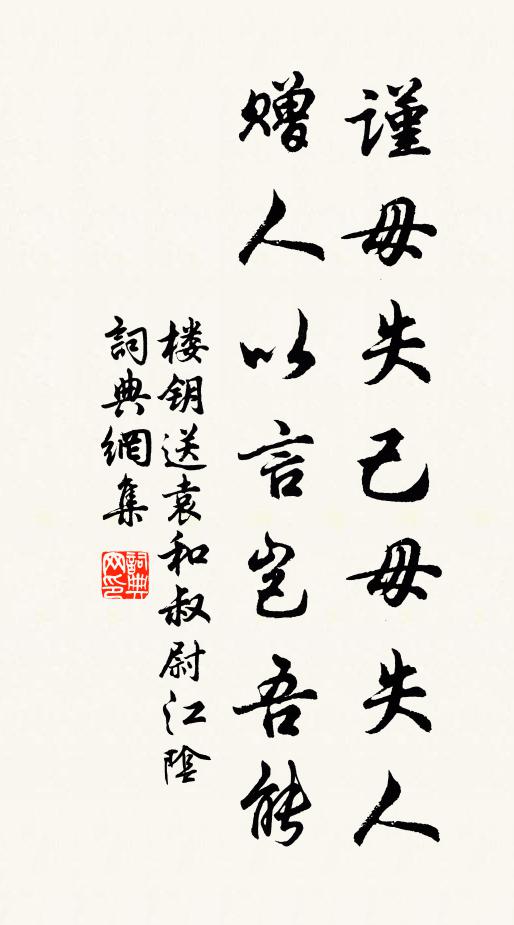 謹毋失己毋失人
赠人以言岂吾能
楼钥送袁和叔尉江陰
詞典網集
詞典網印